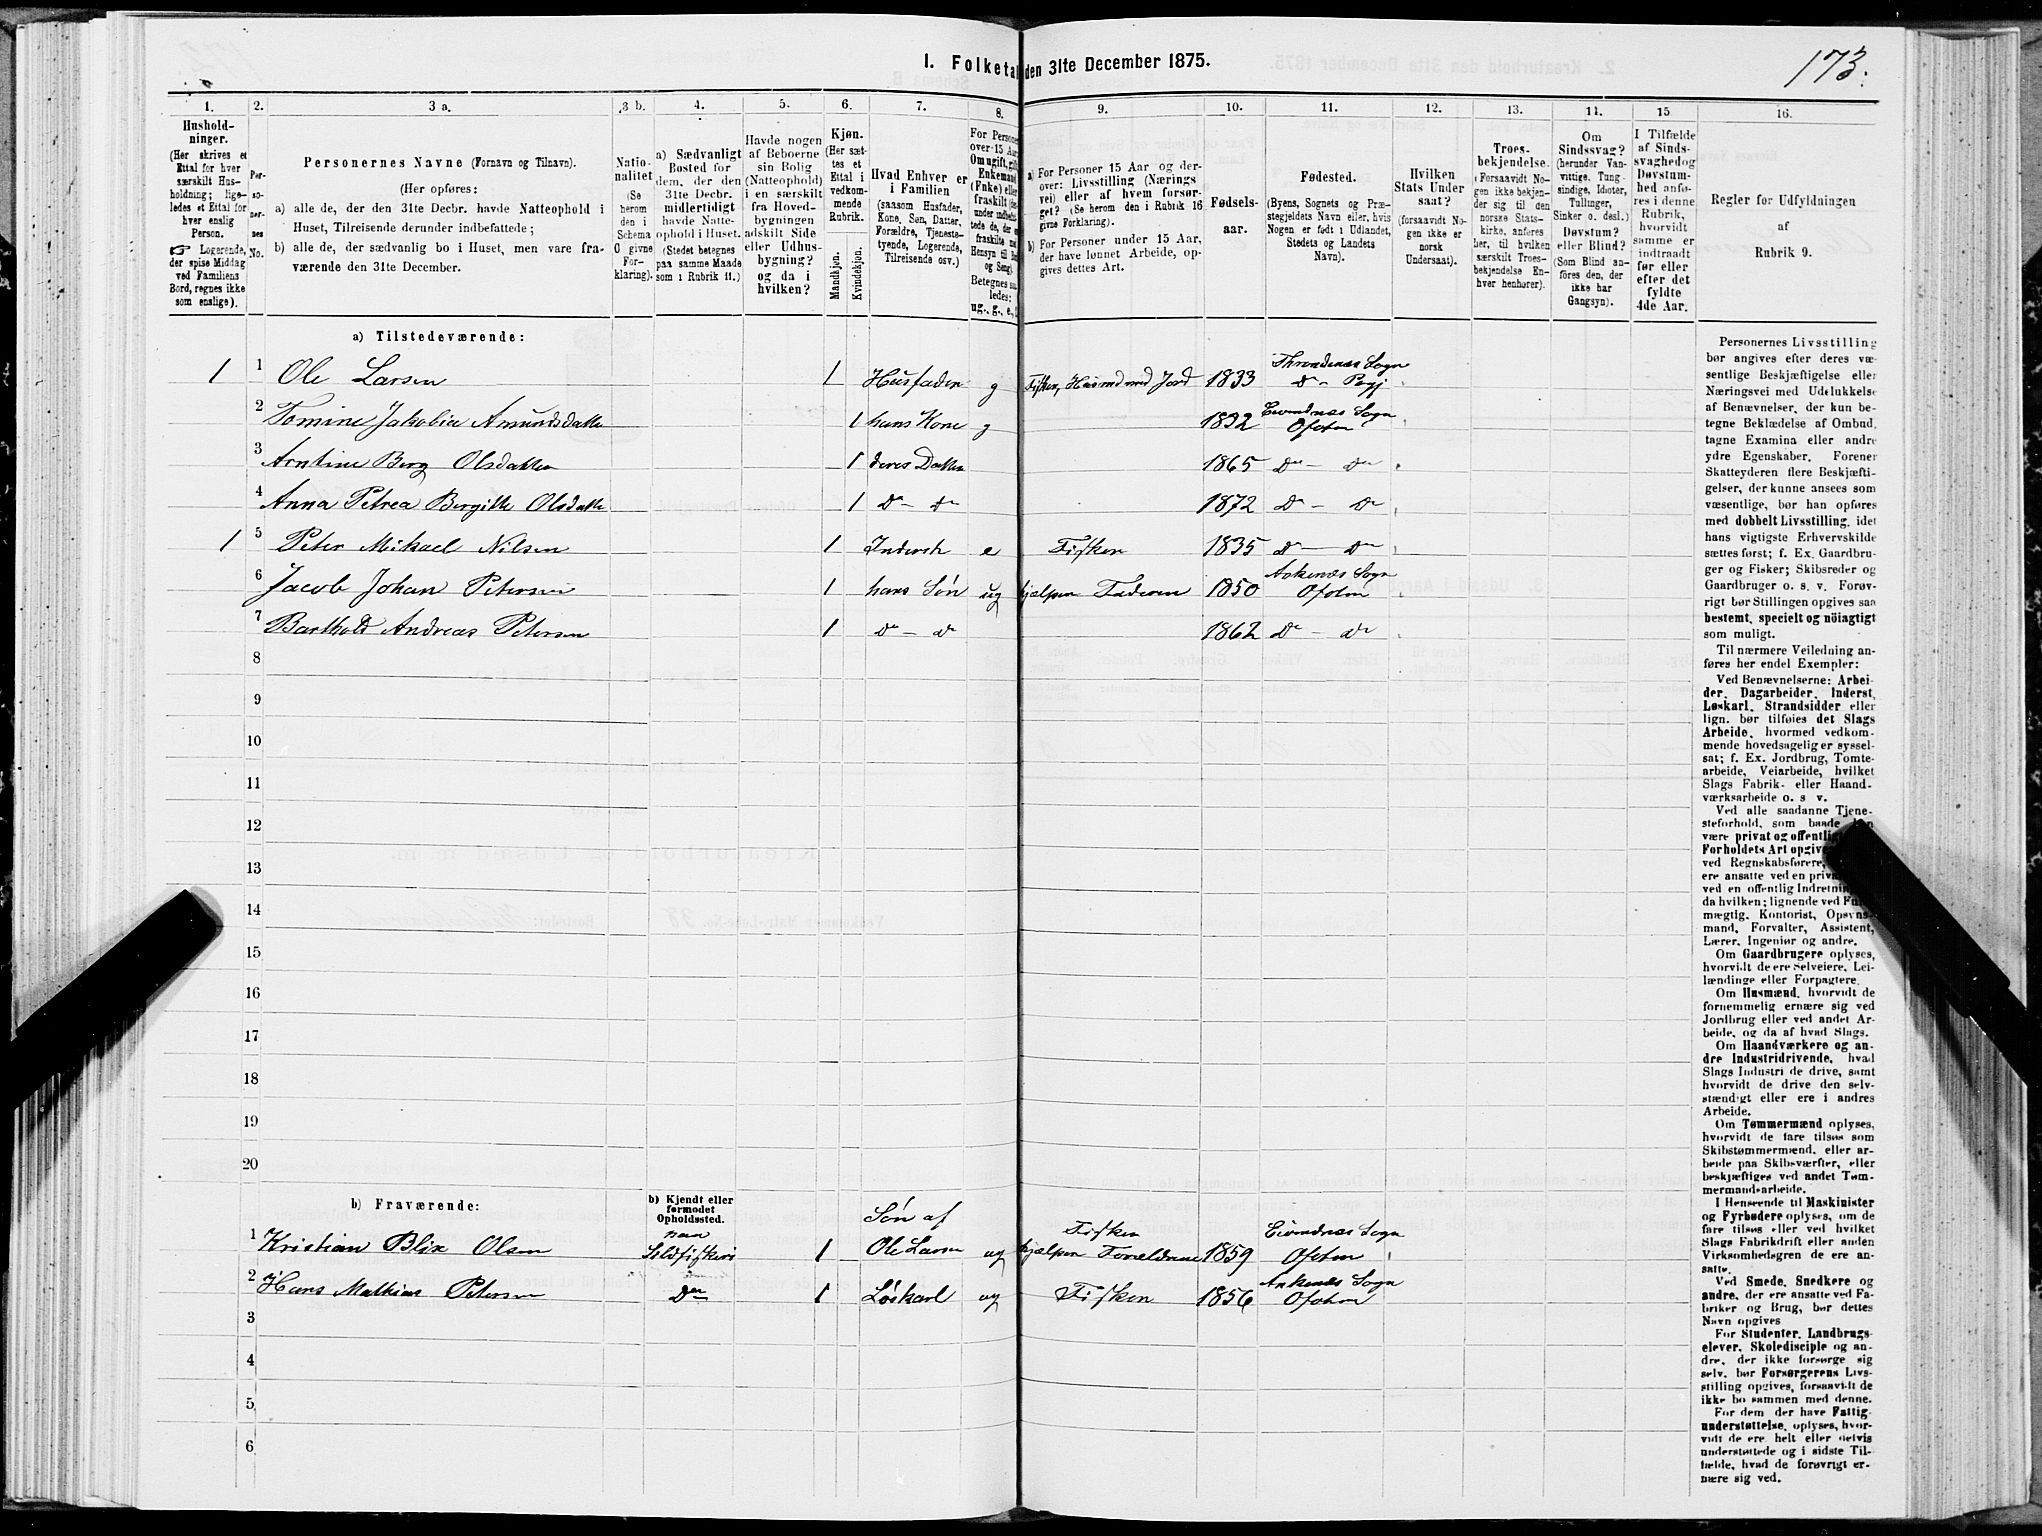 173.
I. Folketal den 31te December 1875.
1. 2. 3 a. 3 b. 4. 5. 6. 7. 8. 9. 10. 11. 12. 13. 14. 15 16.
Hushold-
ninger.
(Her skrives et
Ettal for hver
særskilt Hus-
holdning; lige-
ledes et Ettal for
hver enslig
Person.
☞ Logerende,
der spise Middag
ved Familiens
Bord, regnes ikke
som enslige).
Per-
so-
ner-
nes
No.
Personernes Navne (Fornavn og Tilnavn).
(Her opføres:
a) alle de, der den 31te Decbr. havde Natteophold i
Huset, Tilreisende derunder indbefattede;
b) alle de, der sædvanlig bo i Huset, men vare fra-
værende den 31te December.
Natio-
nalitet
(Se
herom
den i
Schema
O givne
For-
klaring).
a) Sædvanligt
Bosted for
dem, der den
31te Decbr.
midlertidigt
havde Natte-
ophold i Huset.
(Stedet betegnes
paa samme Maade
som i Rubrik 11.)
Havde nogen
af Beboerne
sin Bolig
(Natteophold)
i en særskilt
fra Hoved-
bygningen
adskilt Side
eller Udhus-
bygning?
og da i
hvilken?
Kjøn.
(Her sæt-
tes et
Ettal i
vedkom-
mende
Rubrik.
Mandkjøn.
Kvindekjøn.
Hvad Enhver er
i Familien
(saasom Husfader,
Kone, Søn, Datter,
Forældre, Tjeneste-
tyende, Logerende,
Tilreisende osv.)
For Personer
over 15 Aar:
Om ugift, gift,
Enkemand
(Enke) eller
fraskilt
Betegnes saa-
ledes:
ug., g., e.,
a) For Personer 15 Aar og der-
over: Livsstilling (Nærings
vei) eller af hvem forsør-
get? (Se herom den i Rubrik 16
givne Forklaring).
b) For Personer under 15 Aar,
der have lønnet Arbeide, op-
gives dettes Art.
Fødsels-
aar.
Fødested.
(Byens, Sognets og Præ-
stegjeldets Navn eller, hvis
Nogen er født i Udlandet,
Stedets og Landets
Navn).
Hvilken
Stats Under
saat?
(forsaavidt No-
gen ikke er
norsk
Undersaat).
Troes-
bekjendelse.
(Forsaavidt No-
gen ikke bekjen-
der sig til den
norske Stats-
kirke, anføres
her, til hvilken
særskilt Troes-
bekjendelse En-
hver henhører).
Om
Sindssvag?
(herunder Van-
vittige, Tung-
sindige, Idioter,
Tullinger,
Sinker o. desl.)
Døvstum?
eller Blind?
(Som Blind an-
føres den, der
ikke har
Gangsyn).
I Tilfælde
af Sinds-
svaghed og
Døvstum-
hed anfø-
res i denne
Rubrik,
hvorvidt
samme er
indtraadt
før eller
efter det
fyldte
4de Aar.
Regler for Udfyldningen
af
Rubrik 9.
a) Tilstedeværende:
1 1 Ole Larsen 1 Husfader g Fisker, Husmd med Jord 1833 Throndenæs Sogn Do - Pgj
2 Tomine Jakobia Amundsdatter 1 hans Kone g 1832 Evendnæs Sogn Ofoten
3 Arntine Berg Olsdatter 1 deres Datter 1865 Do - Do
4 Anna Petrea Bergitte Olsdatter 1 Do - Do 1872 Do - Do
1 5 Peter Mikael Nilsen 1 Inderst e Fisker 1835 Do - Do
6 Jacob Johan Petersen 1 hans Søn ug hjælper Faderen 1850 Ankenæs Sogn Ofoten
7 Barthold Andreas Petersen 1 Do - Do 1862 Do - Do
8
9
10
11
12
13
14
15
16
17
18
19
20
b) Fraværende:
b) Kjendt eller
formodet
Opholdssted.
1 Kristian Blix Olsen paa Sildfiskeri 1 Søn af Ole Larsen ug Fisker hjælper Forældrene 1859 Evendnæs Sogn Ofoten
2 Hans Mathias Petersen Do 1 Løskarl ug Fisker 1856 Ankenæs Sogn Ofoten
3
4
5
6
Personernes Livsstilling
bør angives efter deres væ-
sentlige Beskjæftigelse eller
Næringsvei med Udelukkelse
af Benævnelser, der kun be-
tegne Beklædelse af Ombud,
tagne Examina eller andre
ydre Egenskaber. Forener
Skatteyderen flere Beskjæfti-
gelser, der kunne ansees som
væsentlige, bør han opføres
med dobbelt Livsstilling, idet
hans vigtigste Erhvervskilde
sættes først; f. Ex. Gaardbru-
ger og Fisker; Skibsreder og
Gaardbruger o. s. v. Forøv-
rigt bør Stillingen opgives saa
bestemt, specielt og nöiagtigt
som muligt.
Til nærmere Veiledning an-
føres her endel Exempler:
Ved Benævnelserne: Arbei-
der, Dagarbeider, Inderst,
Løskarl, Strandsidder eller
lign. bør tilføies det Slags
Arbeide, hvormed vedkom-
mende hovedsagelig er syssel-
sat; f. Ex. Jordbrug, Tomte-
arbeide, Veiarbeide, hvilket
Slags Fabrik- eller Haand-
værksarbeide o. s v.
Ved alle saadanne Tjene-
steforhold, som baade kan
være privat og offentlig
Forholdets Art opgives
ved Regnskabsførere,
ere ansatte ved en privat
ved en offentlig Indretning
da hvilken; lignende ved Fuld-
mægtig, Kontorist, Opsyns-
mand, Forvalter, Assistent,
Lærer, Ingeniør og andre.
Om Gaardbrugere oplyses,
hvorvidt de ere Selveiere, Lei-
lændinge eller Forpagtere.
Om Husmænd, hvorvidt de
fornemmelig ernære sig ved
Jordbrug eller ved andet Ar-
beide, og da af hvad Slags.
Om Haandværkere og an-
dre Industridrivende, hvad
Slags Industri de drive, samt
hvorvidt de drive den selv-
stændigt eller ere i andres
Arbeide.
Om Tømmermænd oplyses,
hvorvidt de fare tilsøs som
Skibstømmermænd, eller ar-
beide paa Skibsværfter, eller
beskjæftiges ved andet Tøm-
mermandsarbeide.
I Henseende til Maskinister
og Fyrbødere oplyses, om de
fare tilsøs eller ved hvilket
Slags Fabrikdrift eller anden
Virksomhedsgren de ere an-
satte.
Ved Smede, Snedkere og
andre, der ere ansatte ved Fa-
briker og Brug, bør dettes
Navn opgives
For Studenter, Landbrugs-
elever, Skoledisciple og an-
dre, der ikke forsørge sig
selv, bør Forsørgerens Livs-
stilling opgives, forsaavidt de
ikke bo sammen med denne.
For dem der have Fattig-
understøttelse, oplyses, hvor-
vidt de ere helt eller delvis
understøttede og i sidste Til-
fælde, hvad de forøvrigt er-
nære sig ved.